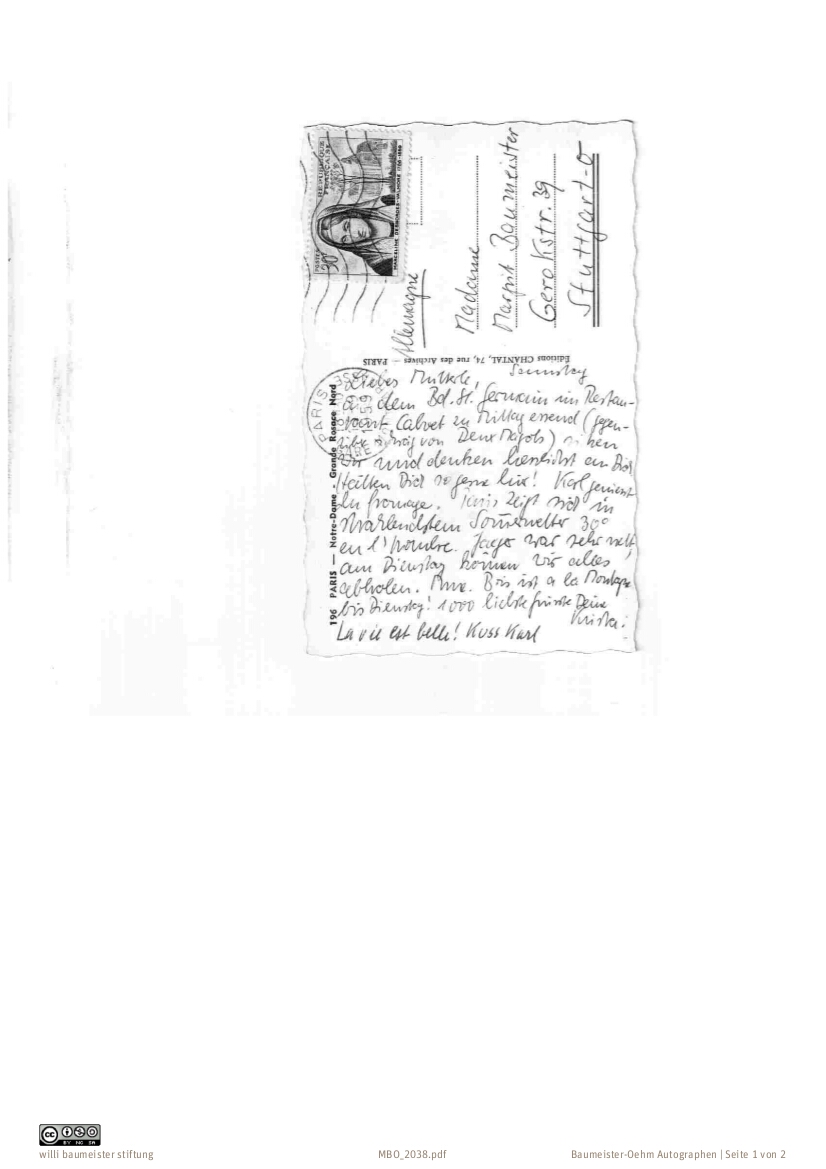 REPUBLIQUE
FRANÇAISE
POSTES
30F
MARCELINE DESBORDES-VALMORE 1786-1859
Allemagne
Madame
Margrit Baumeister
Gerokstr. 39
Stuttgart-O
Editions CHANTAL, 74, rue des Archives — PARIS
196 PARIS — Notre-Dame - Grande Rosace Nord
PARIS
1959
Samstag
Liebes Mutterle,
dem Bd. St. Germain im Restau-
rant Calvet zu Mittag essend (gegen-
über schräg von Deux Magots) sitzen
wir und denken herzlichst an Dich
Hätten Dich so gerne hier! Karl geniesst
du fromage. Paris zeigt sich in
strahlendstem Sommerwetter 30°
en l'hombre. Jaeger war sehr nett,
am Dienstag können wir alles
abholen. Mme. Bois ist a la Montagne
bis Dienstag! 1000 liebste grüsse Deine
Krista.
La vie est belle! Kuss Karl
CC BY NC SA
willi baumeister stiftung
MBO_2038.pdf
Baumeister-Oehm Autographen | Seite 1 von 2